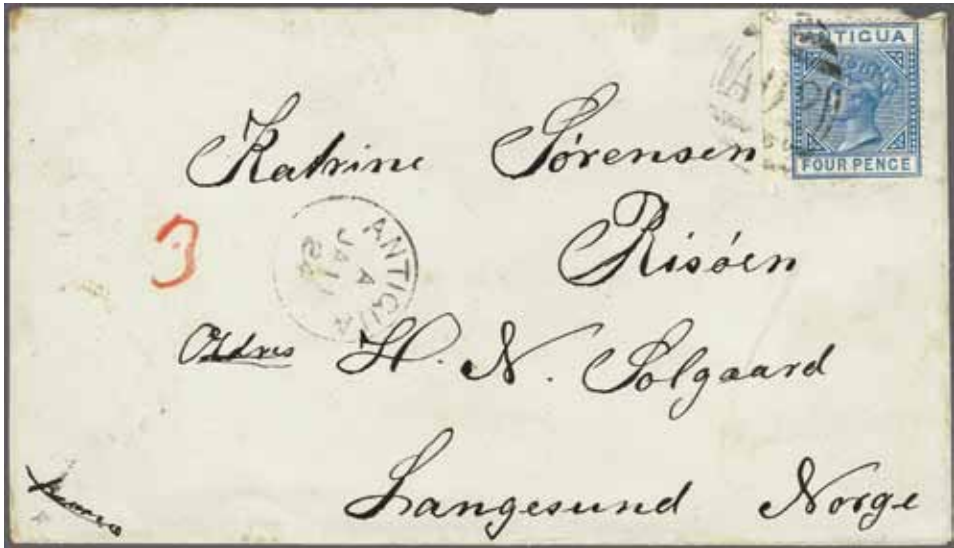 ANTIGUA
A02
FOUR PENCE
Katrine Sörensen
Risöen
3
ANTIGUA
A
JA 11
84
Adres H. N. Solgaard
Langesund Norge